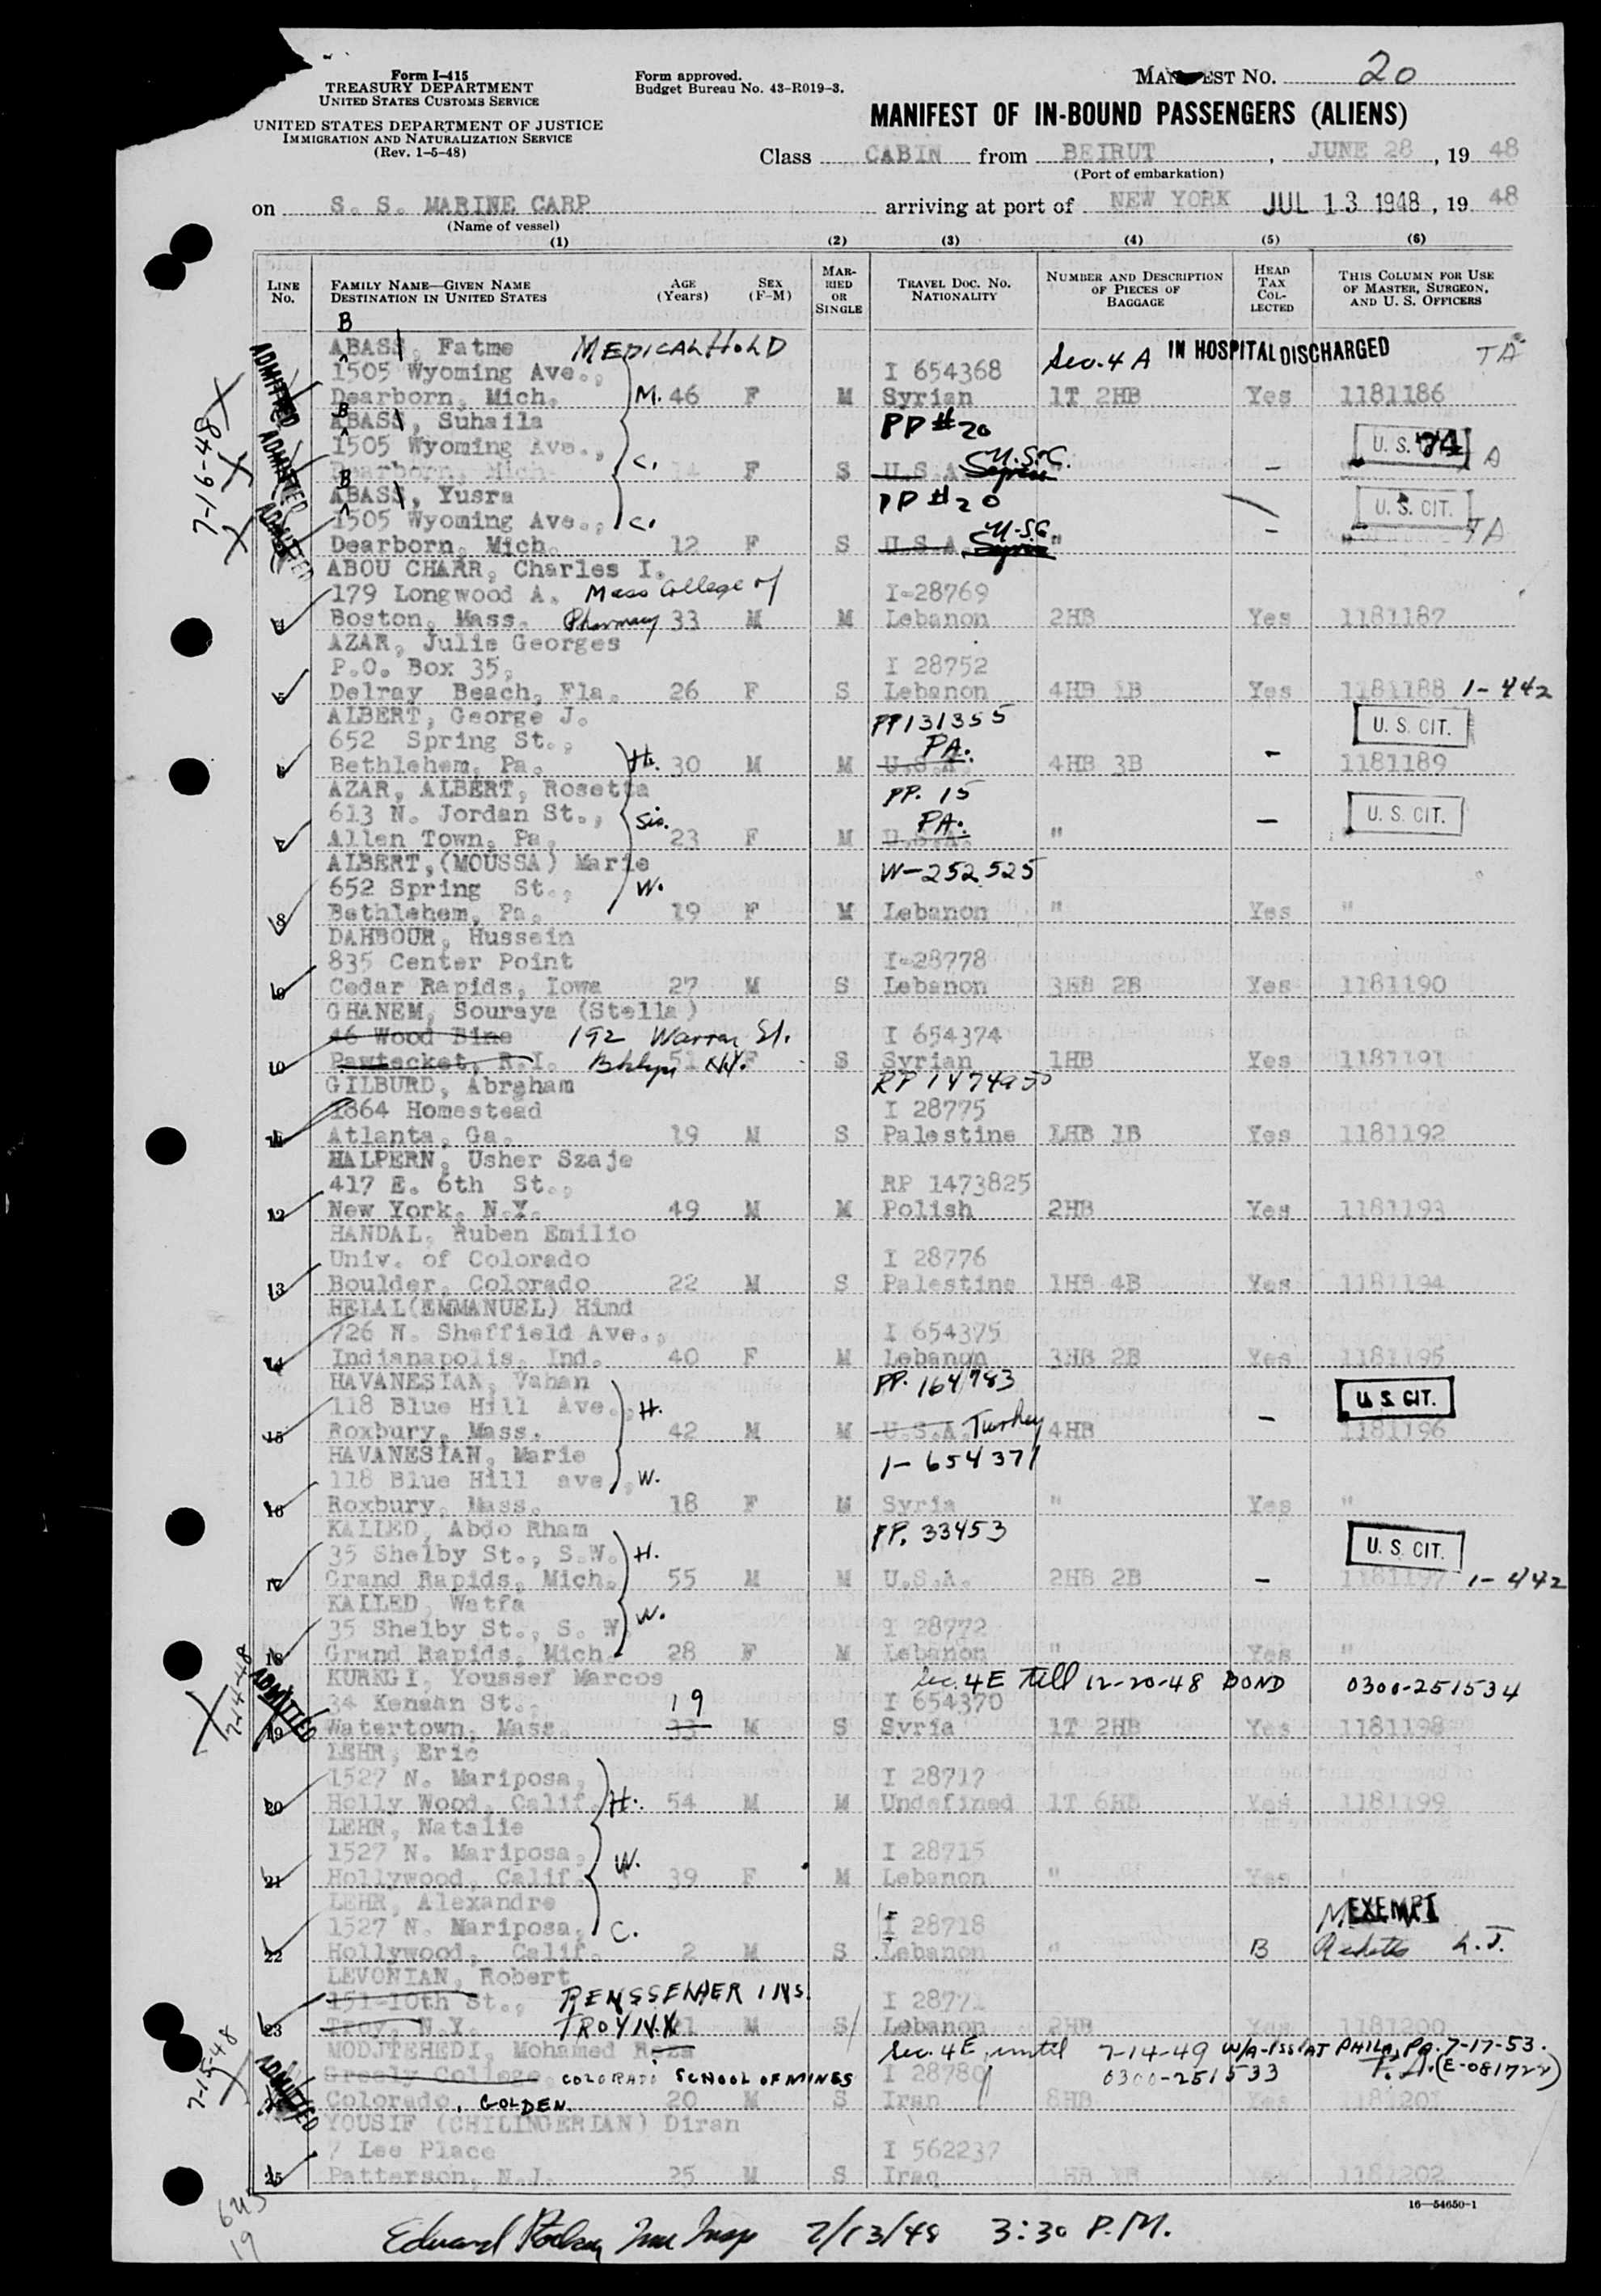 Form I-415
TREASURY DEPARTMENT
UNITED STATES CUSTOMS SERVICE
UNITED STATES DEPARTMENT OF JUSTICE
IMMIGRATION AND NATURALIZATION SERVICE
(Rev. 1-5-48)
Form approved.
Budget Bureau No. 43-R019-3.
MANIFEST NO. 20
MANIFEST OF IN-BOUND PASSENGERS (ALIENS)
Class CABIN from BEIRUT, JUNE 28, 19 48
(Port of embarkation)
on S. S. MARINE CARP arriving at port of NEW YORK JUL 13 1948, 19 48
(Name of vessel)
(1) (2) (3) (4) (5) (6)
LINE No. FAMILY NAME—GIVEN NAME DESTINATION IN UNITED STATES AGE (Years) SEX (F-M) MARRIED OR SINGLE TRAVEL DOC. NO. NATIONALITY NUMBER AND DESCRIPTION OF PIECES OF BAGGAGE HEAD TAX COLLECTED THIS COLUMN FOR USE OF MASTER, SURGEON, AND U. S. OFFICERS
B
ABASS, Fatme MEDICAL HOLD Sec. 4 A IN HOSPITAL DISCHARGED TA
1505 Wyoming Ave., I 654368
ADMITTED Dearborn, Mich. M. 46 F M Syrian 1T 2HB Yes 1181186
B
ABASS, Suhaila PP #20
1505 Wyoming Ave., U.S.C. U. S.
7-16-48 ADMITTED Dearborn, Mich. C. 14 F S U.S.A. — A
B
ABASS, Yusra PP #20
1505 Wyoming Ave., C. U.S.C. U. S. CIT.
ADMITTED Dearborn, Mich. 12 F S U.S.A. " — TA
ABOU CHARR, Charles I.
179 Longwood A. Mass College of I-28769
4 Boston, Mass. Pharmacy 33 M M Lebanon 2HB Yes 1181187
AZAR, Julie Georges
P.O. Box 35, I 28752
5 Delray Beach, Fla. 26 F S Lebanon 4HB 1B Yes 1181188 1-442
ALBERT, George J. PP131355 U. S. CIT.
652 Spring St., PA.
6 Bethlehem, Pa. H. 30 M M U.S.A. 4HB 3B — 1181189
AZAR, ALBERT, Rosetta PP. 15
613 N. Jordan St., Sis. PA. U. S. CIT.
7 Allen Town, Pa. 23 F M U.S.A. " —
ALBERT,(MOUSSA) Marie W-252525
652 Spring St., W.
8 Bethlehem, Pa. 19 F M Lebanon " Yes "
DAHBOUR, Hussein
835 Center Point I-28778
9 Cedar Rapids, Iowa 27 M S Lebanon 3HB 2B Yes 1181190
GHANEM, Souraya (Stella)
46 Wood Bine 192 Warren St. I 654374
10 Pawtecket, R.I. Bklyn N.Y. 51 F S Syrian 1HB Yes 1181191
GILBURD, Abraham RP 1474950
1864 Homestead I 28775
11 Atlanta, Ga. 19 M S Palestine 1HB 1B Yes 1181192
HALPERN, Usher Szaje
417 E. 6th St., RP 1473825
12 New York, N.Y. 49 M M Polish 2HB Yes 1181193
HANDAL, Ruben Emilio
Univ. of Colorado I 28776
13 Boulder, Colorado 22 M S Palestine 1HB 4B Yes 1181194
HELAL(EMMANUEL) Hind
726 N. Sheffield Ave., I 654375
14 Indianapolis, Ind. 40 F M Lebanon 3HB 2B Yes 1181195
HAVANESIAN, Vahan PP. 164783
118 Blue Hill Ave., H. U. S. CIT.
15 Roxbury, Mass. 42 M M U.S.A. Turkey 4HB — 1181196
HAVANESIAN, Marie 1-654371
118 Blue Hill ave, W.
16 Roxbury, Mass. 18 F M Syria " Yes "
KALLED, Abdo Rham PP. 33453
35 Shelby St., S.W. H. U. S. CIT.
17 Grand Rapids, Mich. 55 M M U.S.A. 2HB 2B — 1181197 1-442
KALLED, Watfa
35 Shelby St., S. W W. I 28772
18 Grand Rapids, Mich. 28 F M Lebanon " Yes "
KURKGI, Youssef Marcos Sec. 4E till 12-20-48 BOND 0300-251534
34 Kenaan St., 19 I 654370
7-14-48 ADMITTED 19 Watertown, Mass. M S Syria 1T 2HB Yes 1181198
LEHR, Eric
1527 N. Mariposa, I 28717
20 Holly Wood, Calif. H. 54 M M Undefined 1T 6HB Yes 1181199
LEHR, Natalie
1527 N. Mariposa, W. I 28715
21 Hollywood, Calif. 39 F M Lebanon " Yes "
LEHR, Alexandre EXEMPT
1527 N. Mariposa, C. I 28718
22 Hollywood, Calif. 2 M S Lebanon " B
LEVONIAN, Robert
151-10th St., RENSSELAER INS. I 28771
23 Troy, N.Y. TROY N.Y. 21 M S Lebanon 2HB Yes 1181200
MODJTEHEDI, Mohamed Reza Sec. 4E until 7-14-49 W/A-Iss AT PHILA, PA. 7-17-53.
Greely College, COLORADO SCHOOL OF MINES I 28780 0300-251533 (E-081722)
7-15-48 ADMITTED Colorado, GOLDEN 20 M S Iran 8HB Yes 1181201
YOUSIF (CHILINGERIAN) Diran
7 Lee Place I 562237
25 Patterson, N.J. 25 M S Iraq 1HB 1B Yes 1181202
16—54650-1
Edward 7/13/48 3:30 P.M.